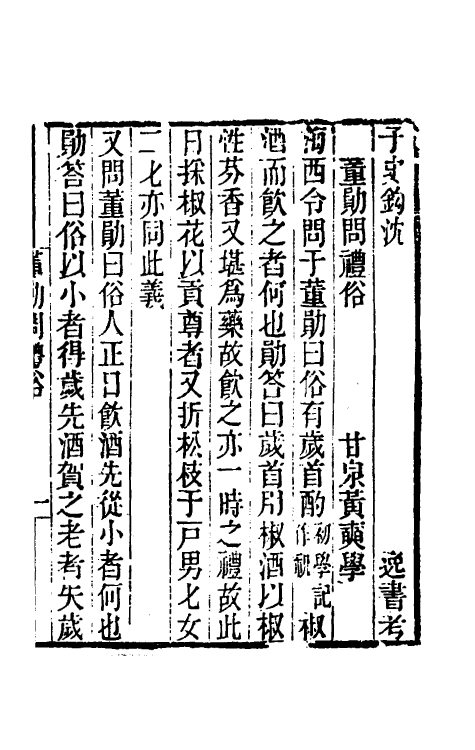 子史鈎沈 逸書考
董勛問禮俗 甘泉黃奭學
海西令問于董勛曰俗有歲首酌初學記作祝椒
酒而飲之者何也勛答曰歲首用椒酒以椒
性芬香又堪爲藥故飲之亦一時之禮故此
日採椒花以貢尊者又折松枝于戶男七女
二七亦同此義
又問董勛曰俗人正日飲酒先從小者何也
勛答曰俗以小者得歲先酒賀之老者失歲
董勛問禮俗 一